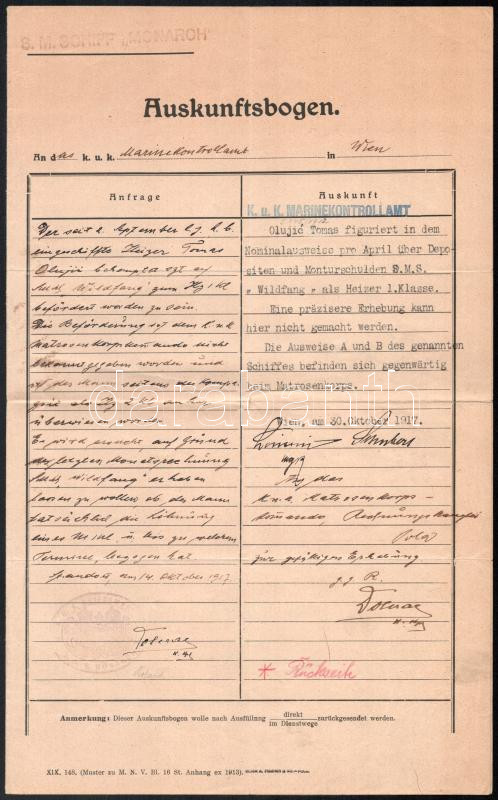 S. M. SCHIFF „MONARCH"
Auskunftsbogen.
An das k. u. k. Marinekontrollamt in Wien
Anfrage
Der seit 2. September l. J. h. b.
eingeschiffte Heizer Tomas
Olujić
S.M.S. „Wildfang" zum
befördert worden zu sein.
Die Beförderung ist dem k.u.k.
Matrosenkorpskommando nicht
bekannt gegeben worden und
ist der Mann seitens der Kompa-
gnie als
überwiesen worden.
Es wird ersucht auf Grund
der letzten Monatsrechnung
S.M.S. „Wildfang" erheben
lassen zu wollen, ob der Mann
tatsächlich die Löhnung
eines und bis zu welchem
Termine, bezogen hat.
am 14. Oktober 1917
Auskunft
K. u. K. MARINEKONTROLLAMT
Olujić Tomas figuriert in dem
Nominalausweise pro April über Depo-
siten und Monturschulden S.M.S.
„ Wildfang " als Heizer 1.Klasse.
Eine präzisere Erhebung kann
hier nicht gemacht werden.
Die Ausweise A und B des genannten
Schiffes befinden sich gegenwärtig
beim Matrosenkorps.
Wien, am 30.Oktober 1917.
An das
k.u.k. Matrosenkorps-
kommando, Rechnungskanzlei
Pola
zur gefälligen Erhebung
* Rückseite
Anmerkung: Dieser Auskunftsbogen wolle nach Ausfüllung direkt zurückgesendet werden.
im Dienstwege
XIX. 148. (Muster zu M. N. V. Bl. 16 St. Anhang ex 1913).
darabanth